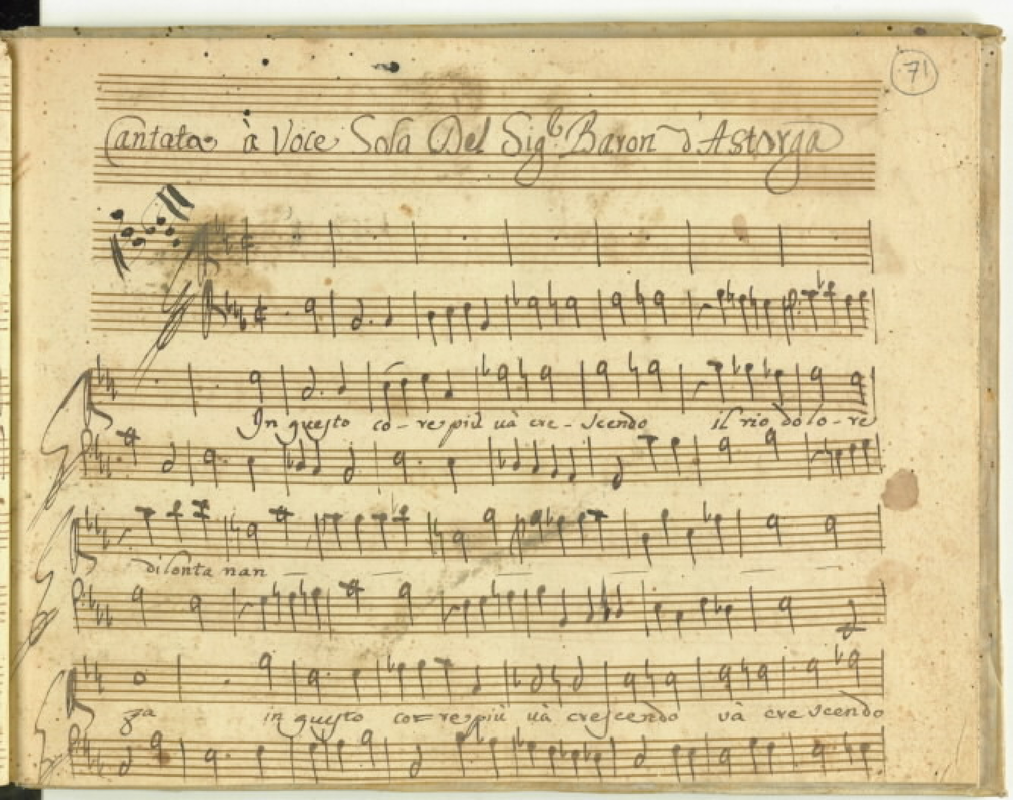 71
Cantata à Voce Sola Del Sig.r Baron d'Astorga
In questo co-re più uà cre-scendo il rio dolo-re
di lonta nan
za in questo co-re più uà crescendo uà cre scendo